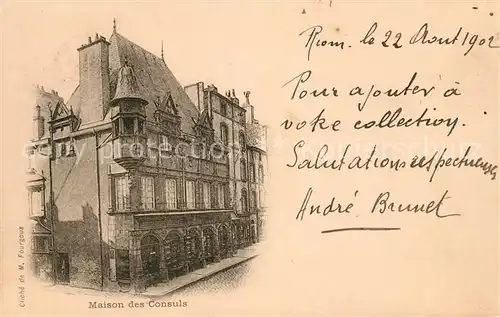 Riom, le 22 Août 1902
Pour ajouter à
votre collection.
Salutations respectueuses
André Brunet
Maison des Consuls
Cliché de M. Fourgous